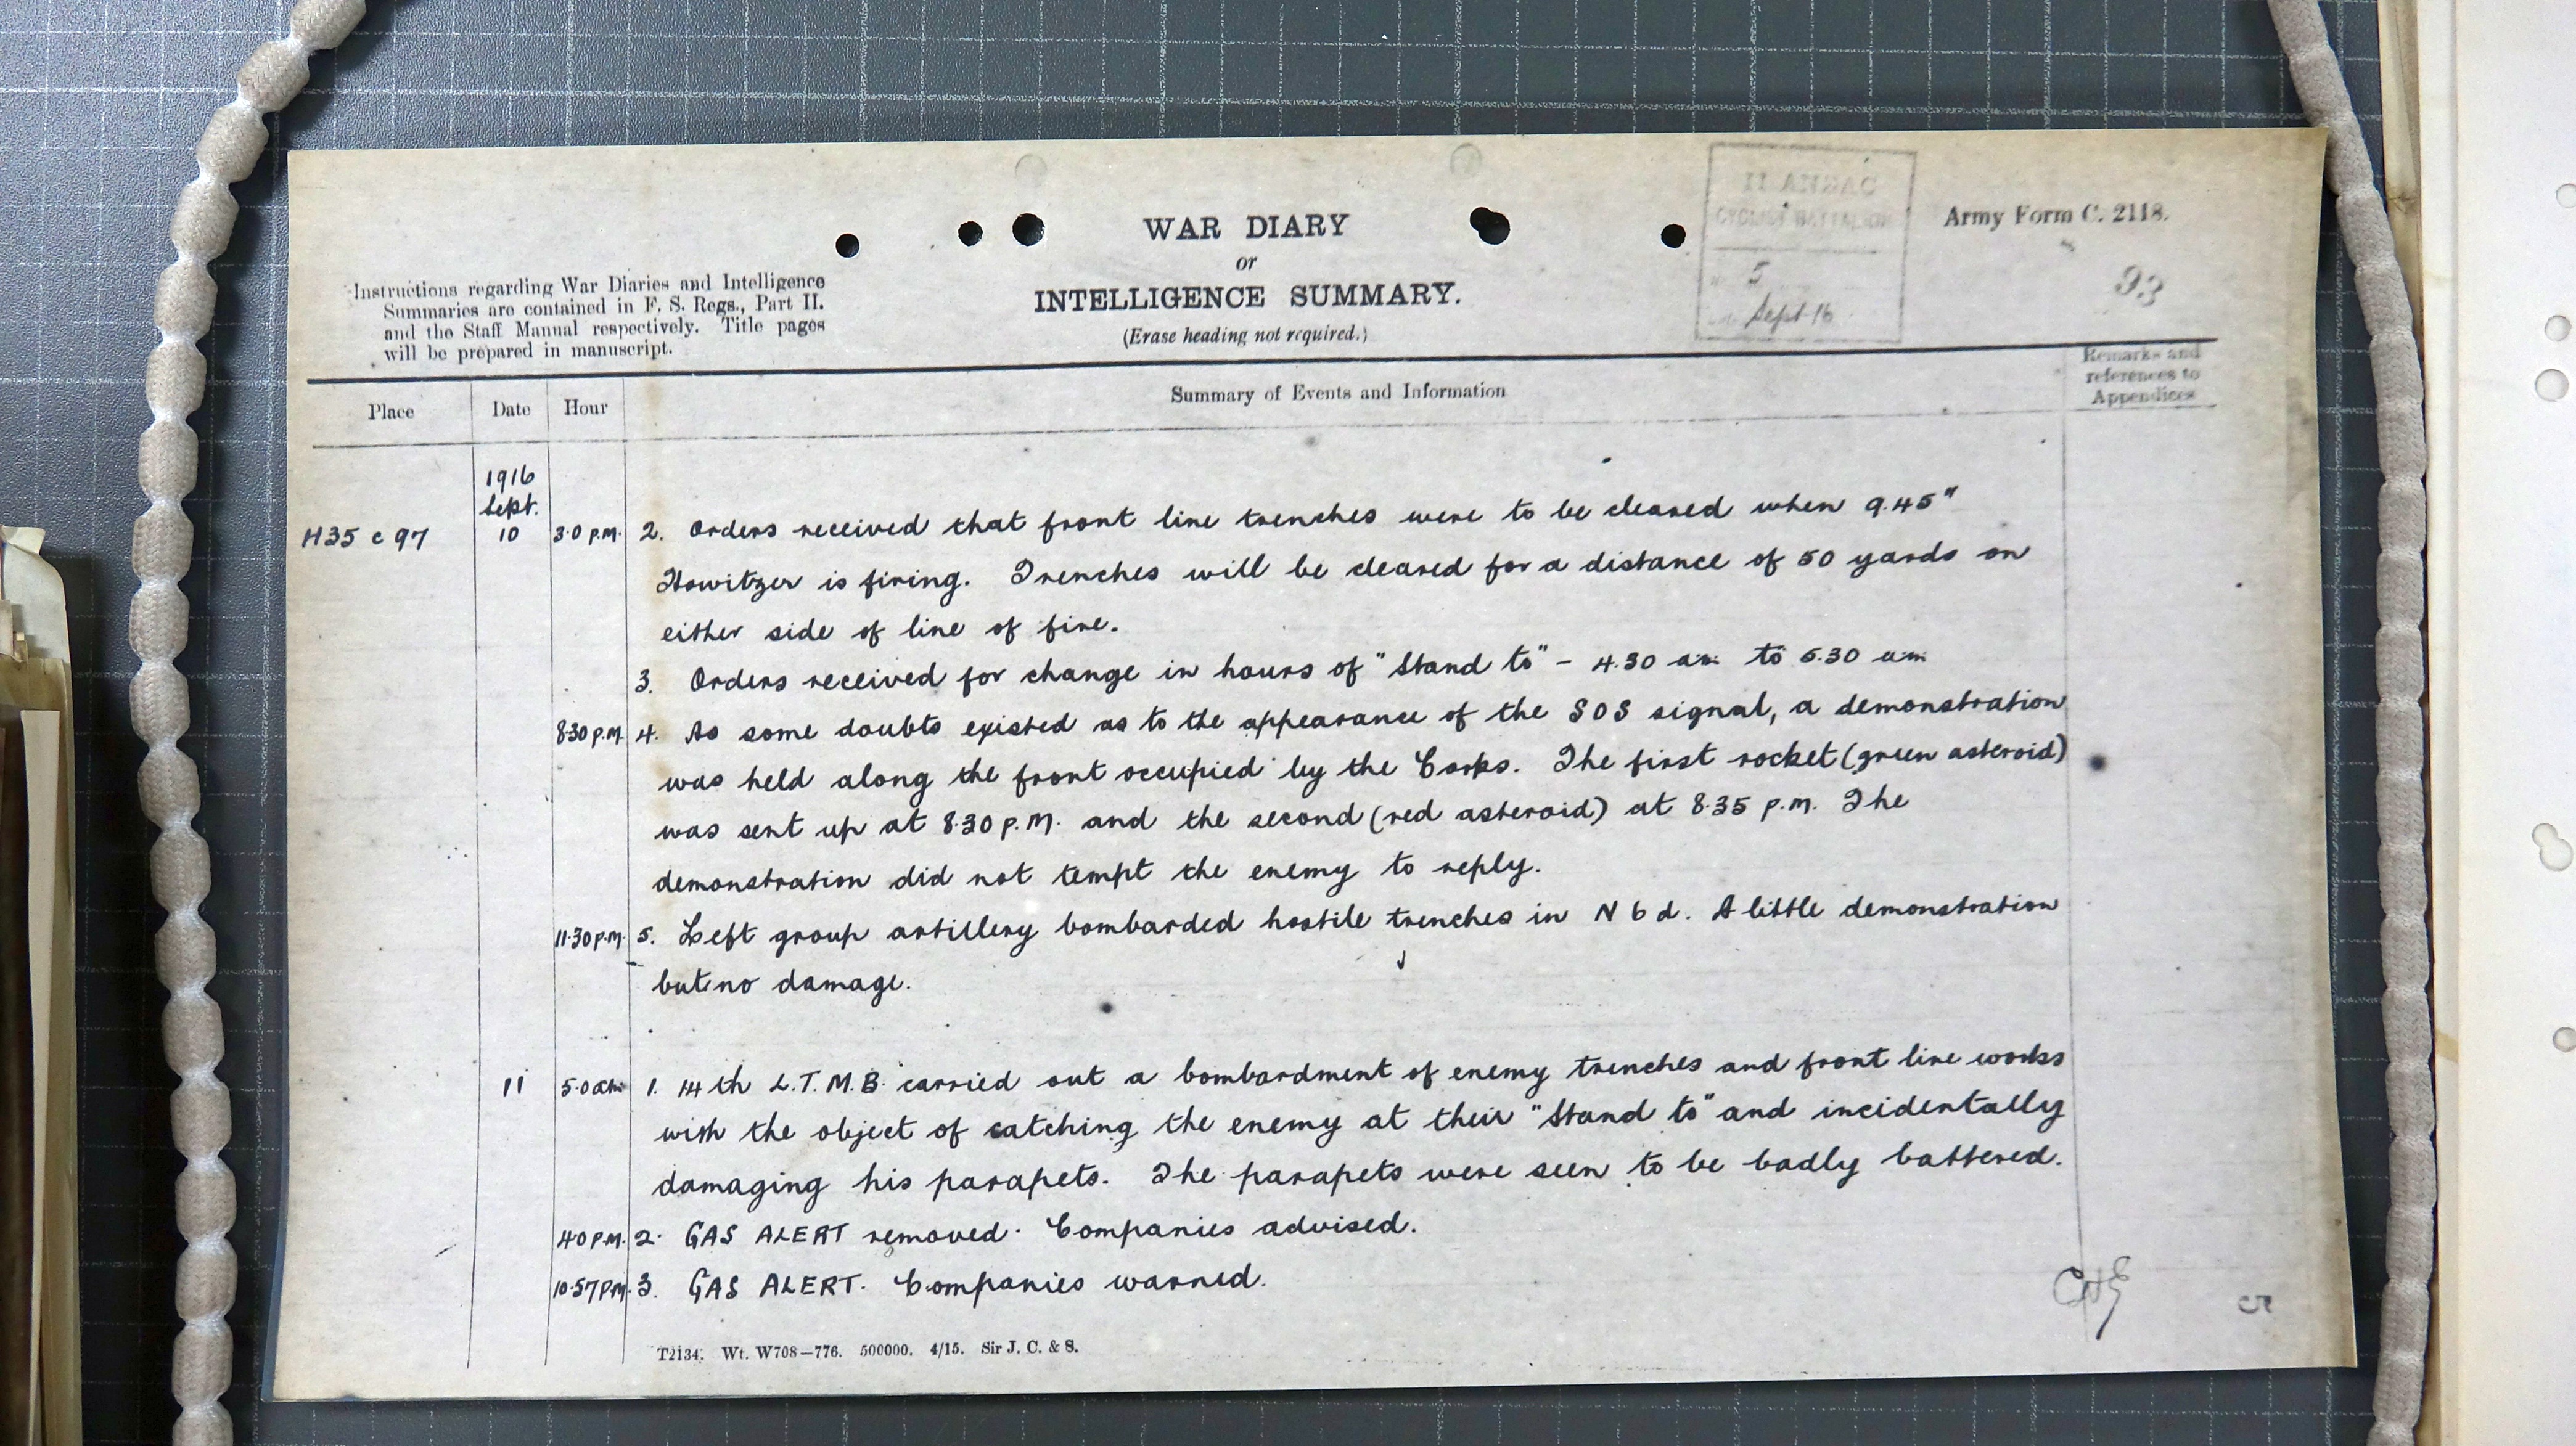 II ANZAC
CYCLIST BATTALION
5
Sept 16
Army Form C. 2118.
93
WAR DIARY
or
INTELLIGENCE SUMMARY.
(Erase heading not required.)
Instructions regarding War Diaries and Intelligence
Summaries are contained in F. S. Regs., Part II.
and the Staff Manual respectively. Title pages
will be prepared in manuscript.
Place Date Hour Summary of Events and Information Remarks and
references to
Appendices
1916
Sept.
H35 c 97 10 3.0 P.M. 2. Orders received that front line trenches were to be cleared when 9.45"
Howitzer is firing. Trenches will be cleared for a distance of 50 yards on
either side of line of fire.
3. Orders received for change in hours of "Stand to" - 4.30 am to 5.30 am
8.30 P.M. 4. As some doubts existed as to the appearance of the SOS signal, a demonstration
was held along the front occupied by the Corps. The first rocket (green asteroid)
was sent up at 8.30 P.M. and the second (red asteroid) at 8.35 p.m. The
demonstration did not tempt the enemy to reply.
11.30 P.M. 5. Left group artillery bombarded hostile trenches in N 6 d. A little demonstration
but no damage.
11 5.0 am 1. 14th L.T.M.B. carried out a bombardment of enemy trenches and front line works
with the object of catching the enemy at their "Stand to" and incidentally
damaging his parapets. The parapets were seen to be badly battered.
4.0 P.M. 2. GAS ALERT removed. Companies advised.
10.57 P.M. 3. GAS ALERT. Companies warned.
5
T2134. Wt. W708—776. 500000. 4/15. Sir J. C. & S.